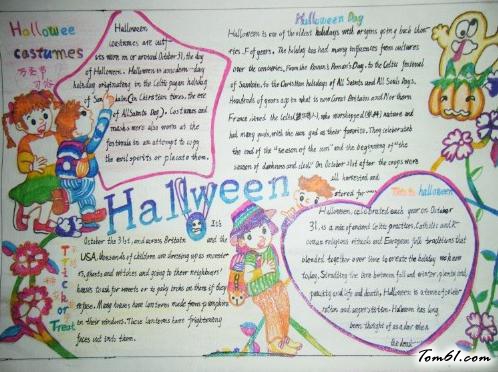 Hallowee
costumes
万圣节
Halloween
costumes are out-
fits worn on or around October 31, the day
of Halloween. Halloween is a modern-day
holiday originating in the Celtic pagan holiday
of Samhain (in Christian times, the eve
of All Saints Day). Costumes and
masks were also worn at the
festivals in an attempt to copy
the evil spirits or placate them.
Halloween Day
Halloween is one of the oldest holidays with origins going back
ries of years. The holiday has had many influences from cultures
over the centuries. From the Roman's Pomona's Day, to the Celtic festival
of Samhain, to the Christian holidays of All Saints and All Souls Days.
Hundreds of years ago in what is now Great Britain and Northern
France lived the Celts, who worshipped nature and
had many gods, with the sun god as their favorite. They celebrated
the end of the "season of the sun" and the beginning of "the
season of darkness and cold" On October 31st after the crops were
all harvested and
stored for
Hallween
Trick or Treat
It's
October the 31st, and across Britain and the
USA, thousands of children are dressing up as monsters,
ghosts and witches and going to their neighbours'
houses to ask for sweets or to play tricks on them if they
refuse. Many houses have lanterns made from pumpkins
in their windows. These lanterns have frightening
faces cut into them.
This is halloween
Halloween, celebrated each year on October
31, is a mix of ancient Celtic practices, Catholic and
Roman religious rituals and European folk traditions that
blended together over time to create the holiday we know
today. Straddling the line between fall and winter, plenty and
paucity and life and death, Halloween is a time of celebration
and superstition. Halloween has long
been thought of as a day when
the dead
Tom61.com